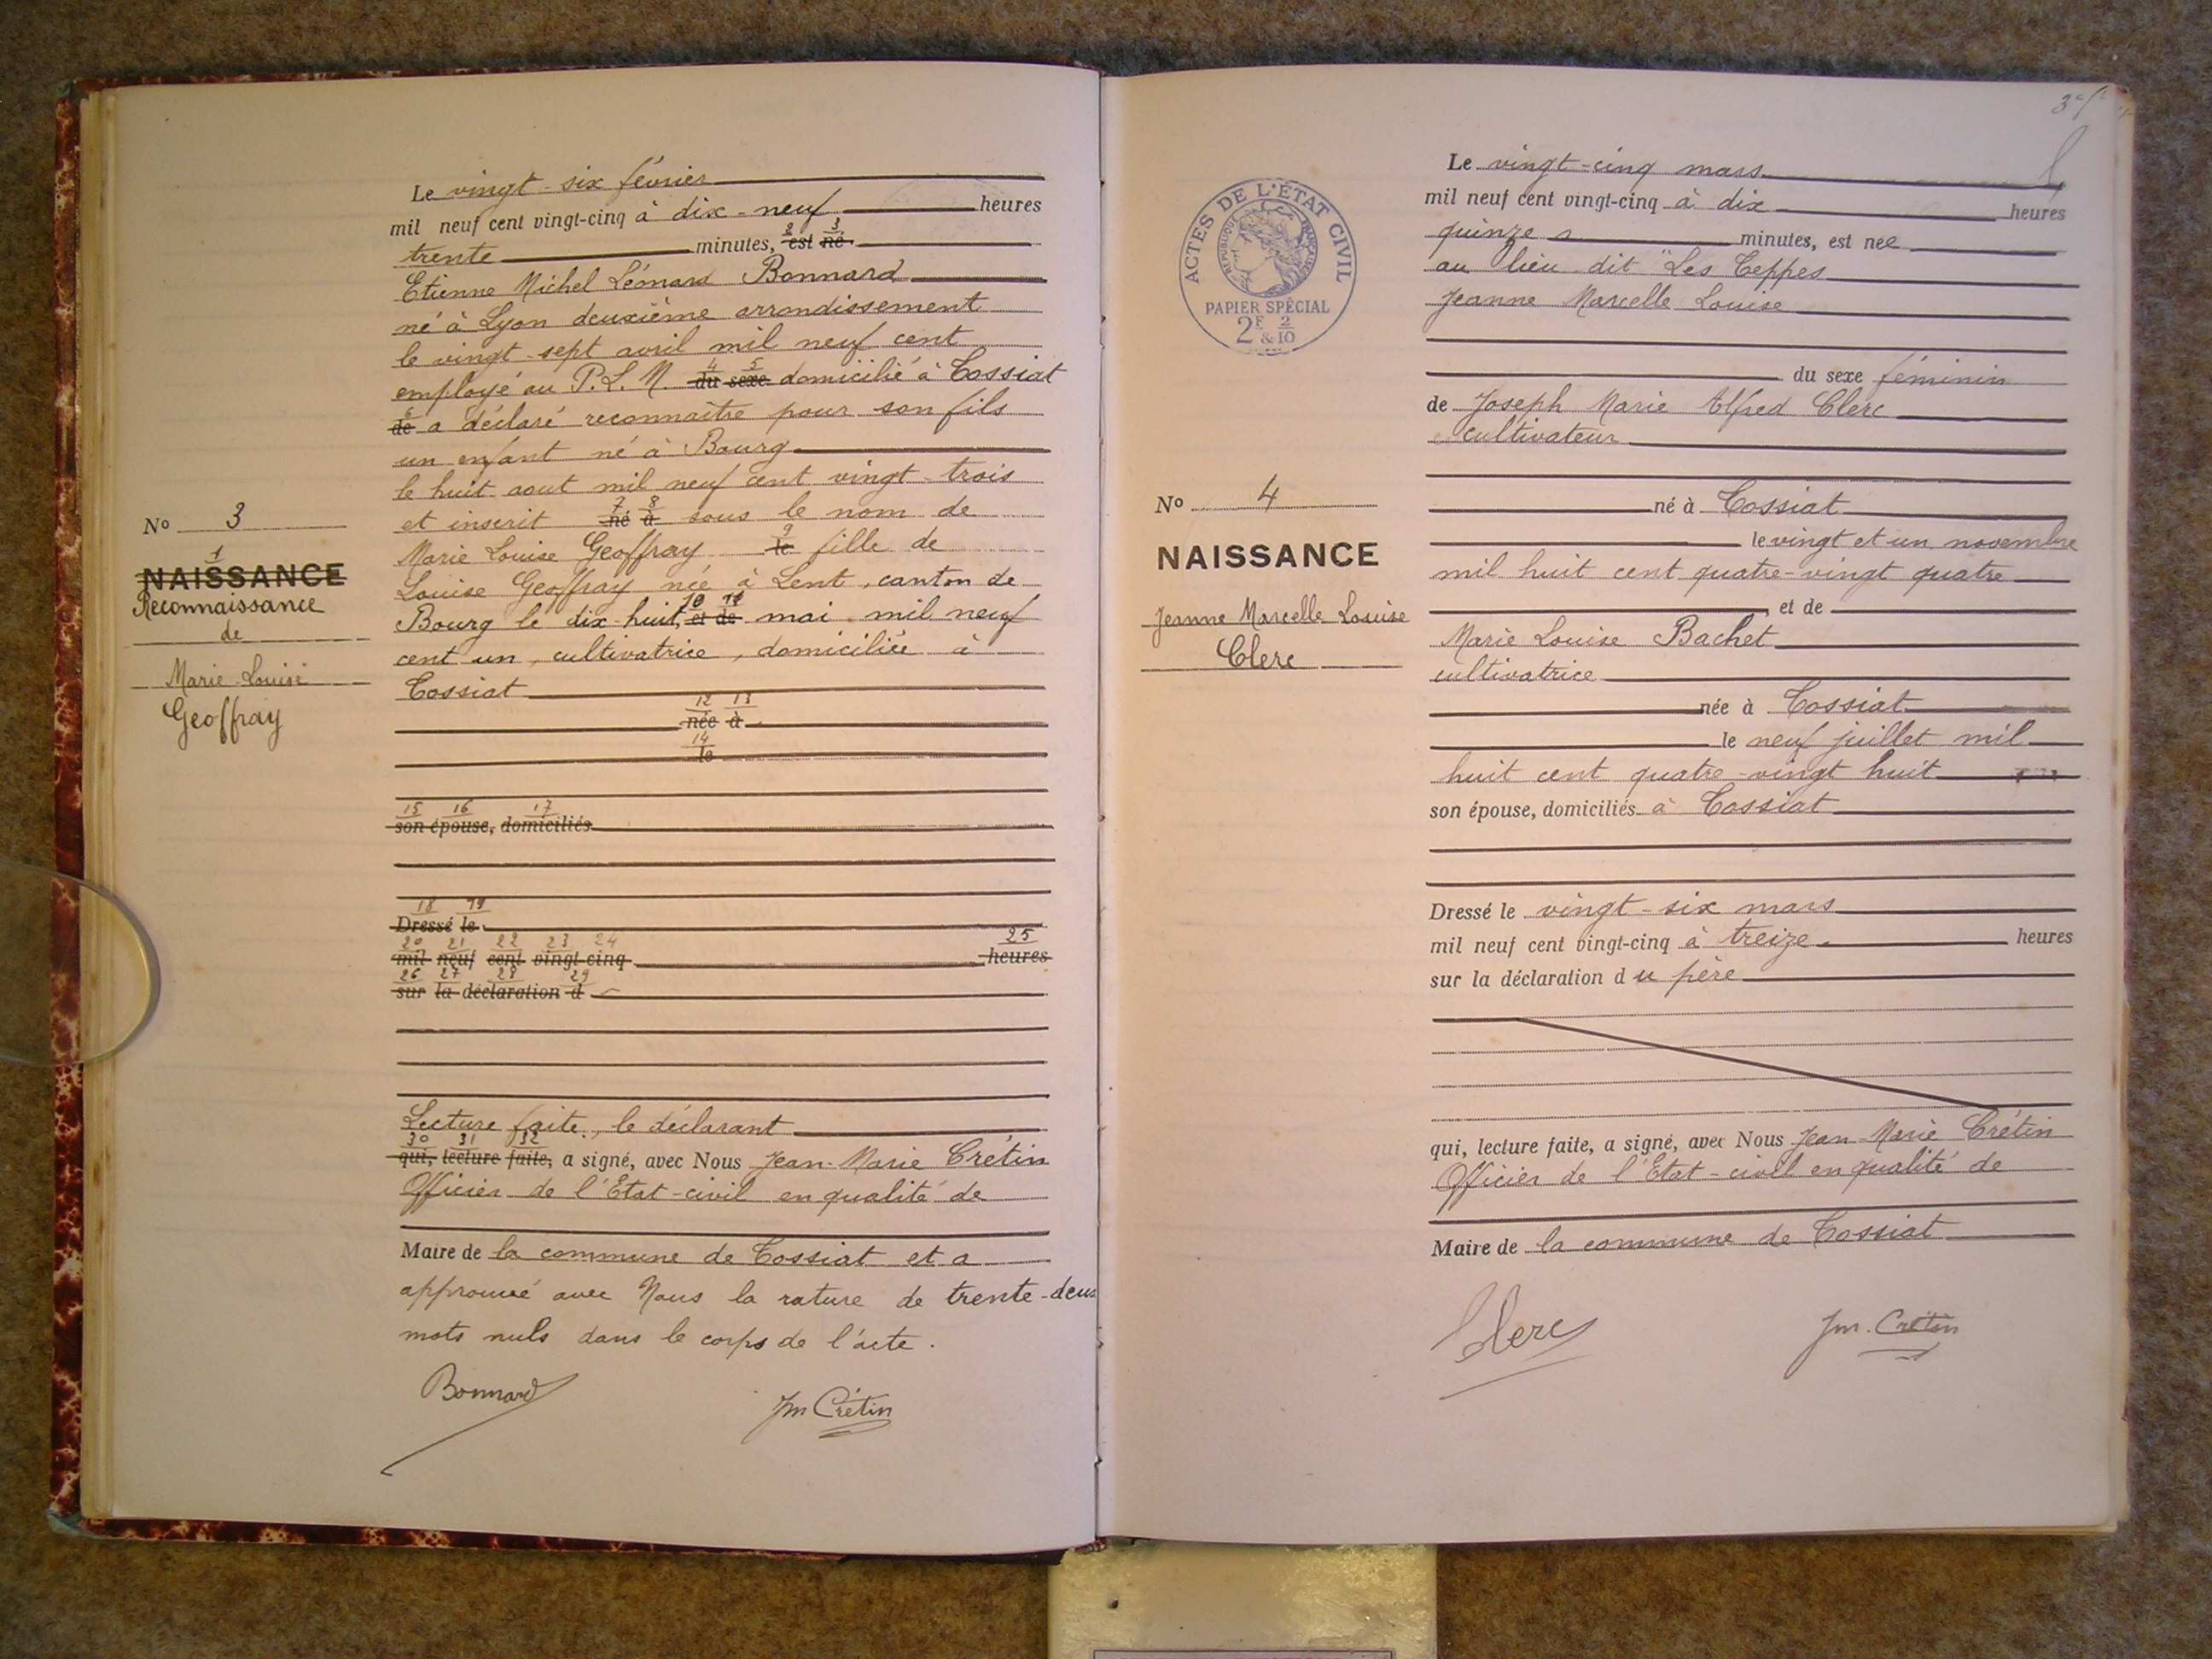 Le vingt-six février
mil neuf cent vingt-cinq à dix-neuf heures
2 3
trente minutes, est né
Etienne Michel Léonard Bonnard
né à Lyon deuxième arrondissement
le vingt-sept avril mil neuf cent
4 5
employé au P.L.M. du sexe domicilié à Tossiat
6
de a déclaré reconnaître pour son fils
un enfant né à Bourg
le huit aout mil neuf cent vingt-trois
7 8
et inscrit né à sous le nom de
9
Marie Louise Geoffray le fille de
Louise Geoffray née à Lent, canton de
10 11
Bourg le dix-huit, et de mai mil neuf
cent un, cultivatrice, domiciliée à
Tossiat
12 13
née à
14
le
15 16 17
son épouse, domiciliés
18 19
Dressé le
20 21 22 23 24 25
mil neuf cent vingt-cinq heures
26 27 28 29
sur la déclaration d
Lecture faite, le déclarant
30 31 32
qui, lecture faite, a signé, avec Nous Jean-Marie Crétin
Officier de l'Etat-civil en qualité de
Maire de la commune de Tossiat et a
approuvé avec Nous la rature de trente-deux
mots nuls dans le corps de l'acte.
Bonnard Jm Crétin
No 3
1
NAISSANCE
Reconnaissance
de
Marie-Louise
Geoffray
Le vingt-cinq mars
mil neuf cent vingt-cinq à dix heures
quinze minutes, est née
au lieu dit "Les Teppes
Jeanne Marcelle Louise
du sexe féminin
de Joseph Marie Alfred Clerc
cultivateur
né à Tossiat
le vingt et un novembre
mil huit cent quatre-vingt quatre
et de
Marie Louise Bachet
cultivatrice
née à Tossiat
le neuf juillet mil
huit cent quatre-vingt huit
son épouse, domiciliés à Tossiat
Dressé le vingt-six mars
mil neuf cent vingt-cinq à treize heures
sur la déclaration du père
qui, lecture faite, a signé, avec Nous Jean-Marie Crétin
Officier de l'Etat-civil en qualité de
Maire de la commune de Tossiat
Clerc Jm. Crétin
ACTES DE L'ÉTAT CIVIL
RÉPUBLIQUE FRANÇAISE
PAPIER SPÉCIAL
2F & 2/10
No 4
NAISSANCE
Jeanne Marcelle Louise
Clerc